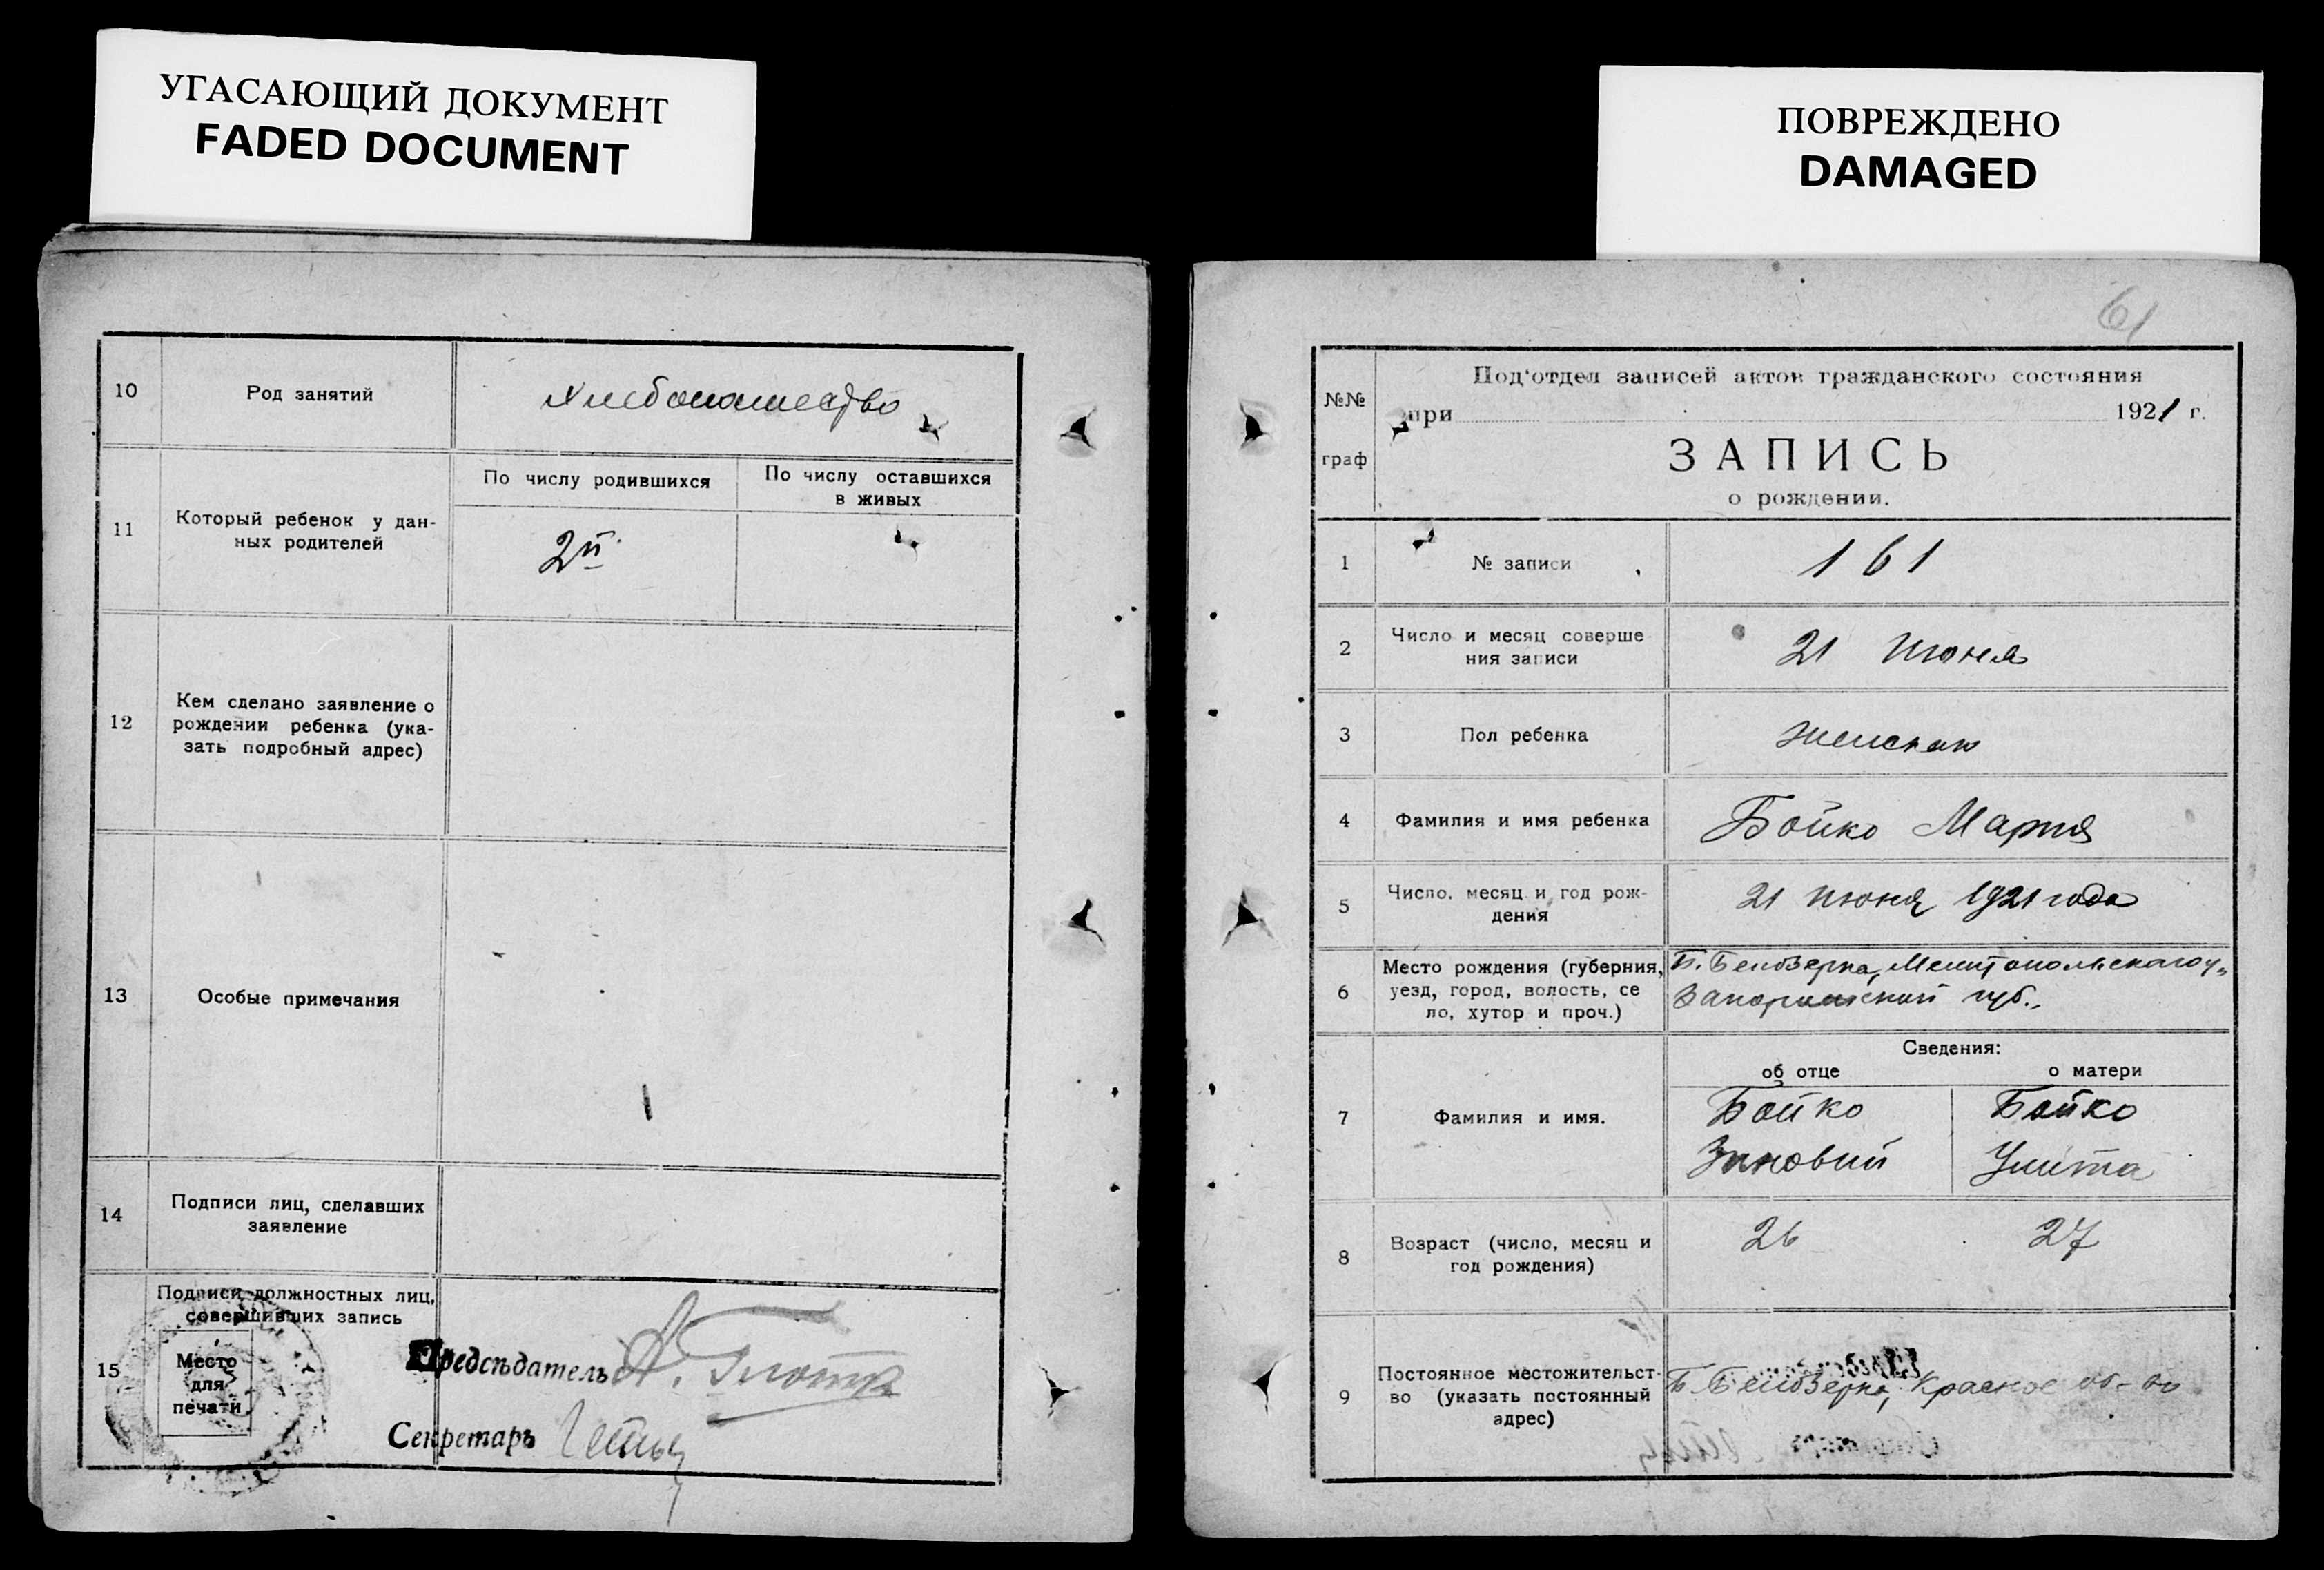 УГАСАЮЩИЙ ДОКУМЕНТ
FADED DOCUMENT
10
Род занятий
Хлебопашество
11
Который ребенок у дан-
ных родителей
По числу родившихся
По числу оставшихся
в живых
2й
12
Кем сделано заявление о
рождении ребенка (ука-
зать подробный адрес)
13
Особые примечания
14
Подписи лиц, сделавших
заявление
15
Подписи должностных лиц,
совершивших запись
Место
для
печати
Предсѣдатель
Секретарь
ПОВРЕЖДЕНО
DAMAGED
61
№№
граф
Под'отдел записей актов гражданского состояния
при 1921 г.
ЗАПИСЬ
о рождении.
1
№ записи
161
2
Число и месяц соверше
ния записи
21 Июня
3
Пол ребенка
женская
4
Фамилия и имя ребенка
Бойко Мария
5
Число, месяц и год рож-
дения
21 Июня 1921 года
6
Место рождения (губерния,
уезд, город, волость, се
ло, хутор и проч.)
Б. Белозерка, Мелитопольскаго у.
Запорожской губ.
Сведения:
об отце
о матери
7
Фамилия и имя.
Бойко
Зиновий
Бойко
Улита
8
Возраст (число, месяц и
год рождения)
26
27
9
Постоянное местожительст-
во (указать постоянный
адрес)
Б. Белозерка, Красное об-во